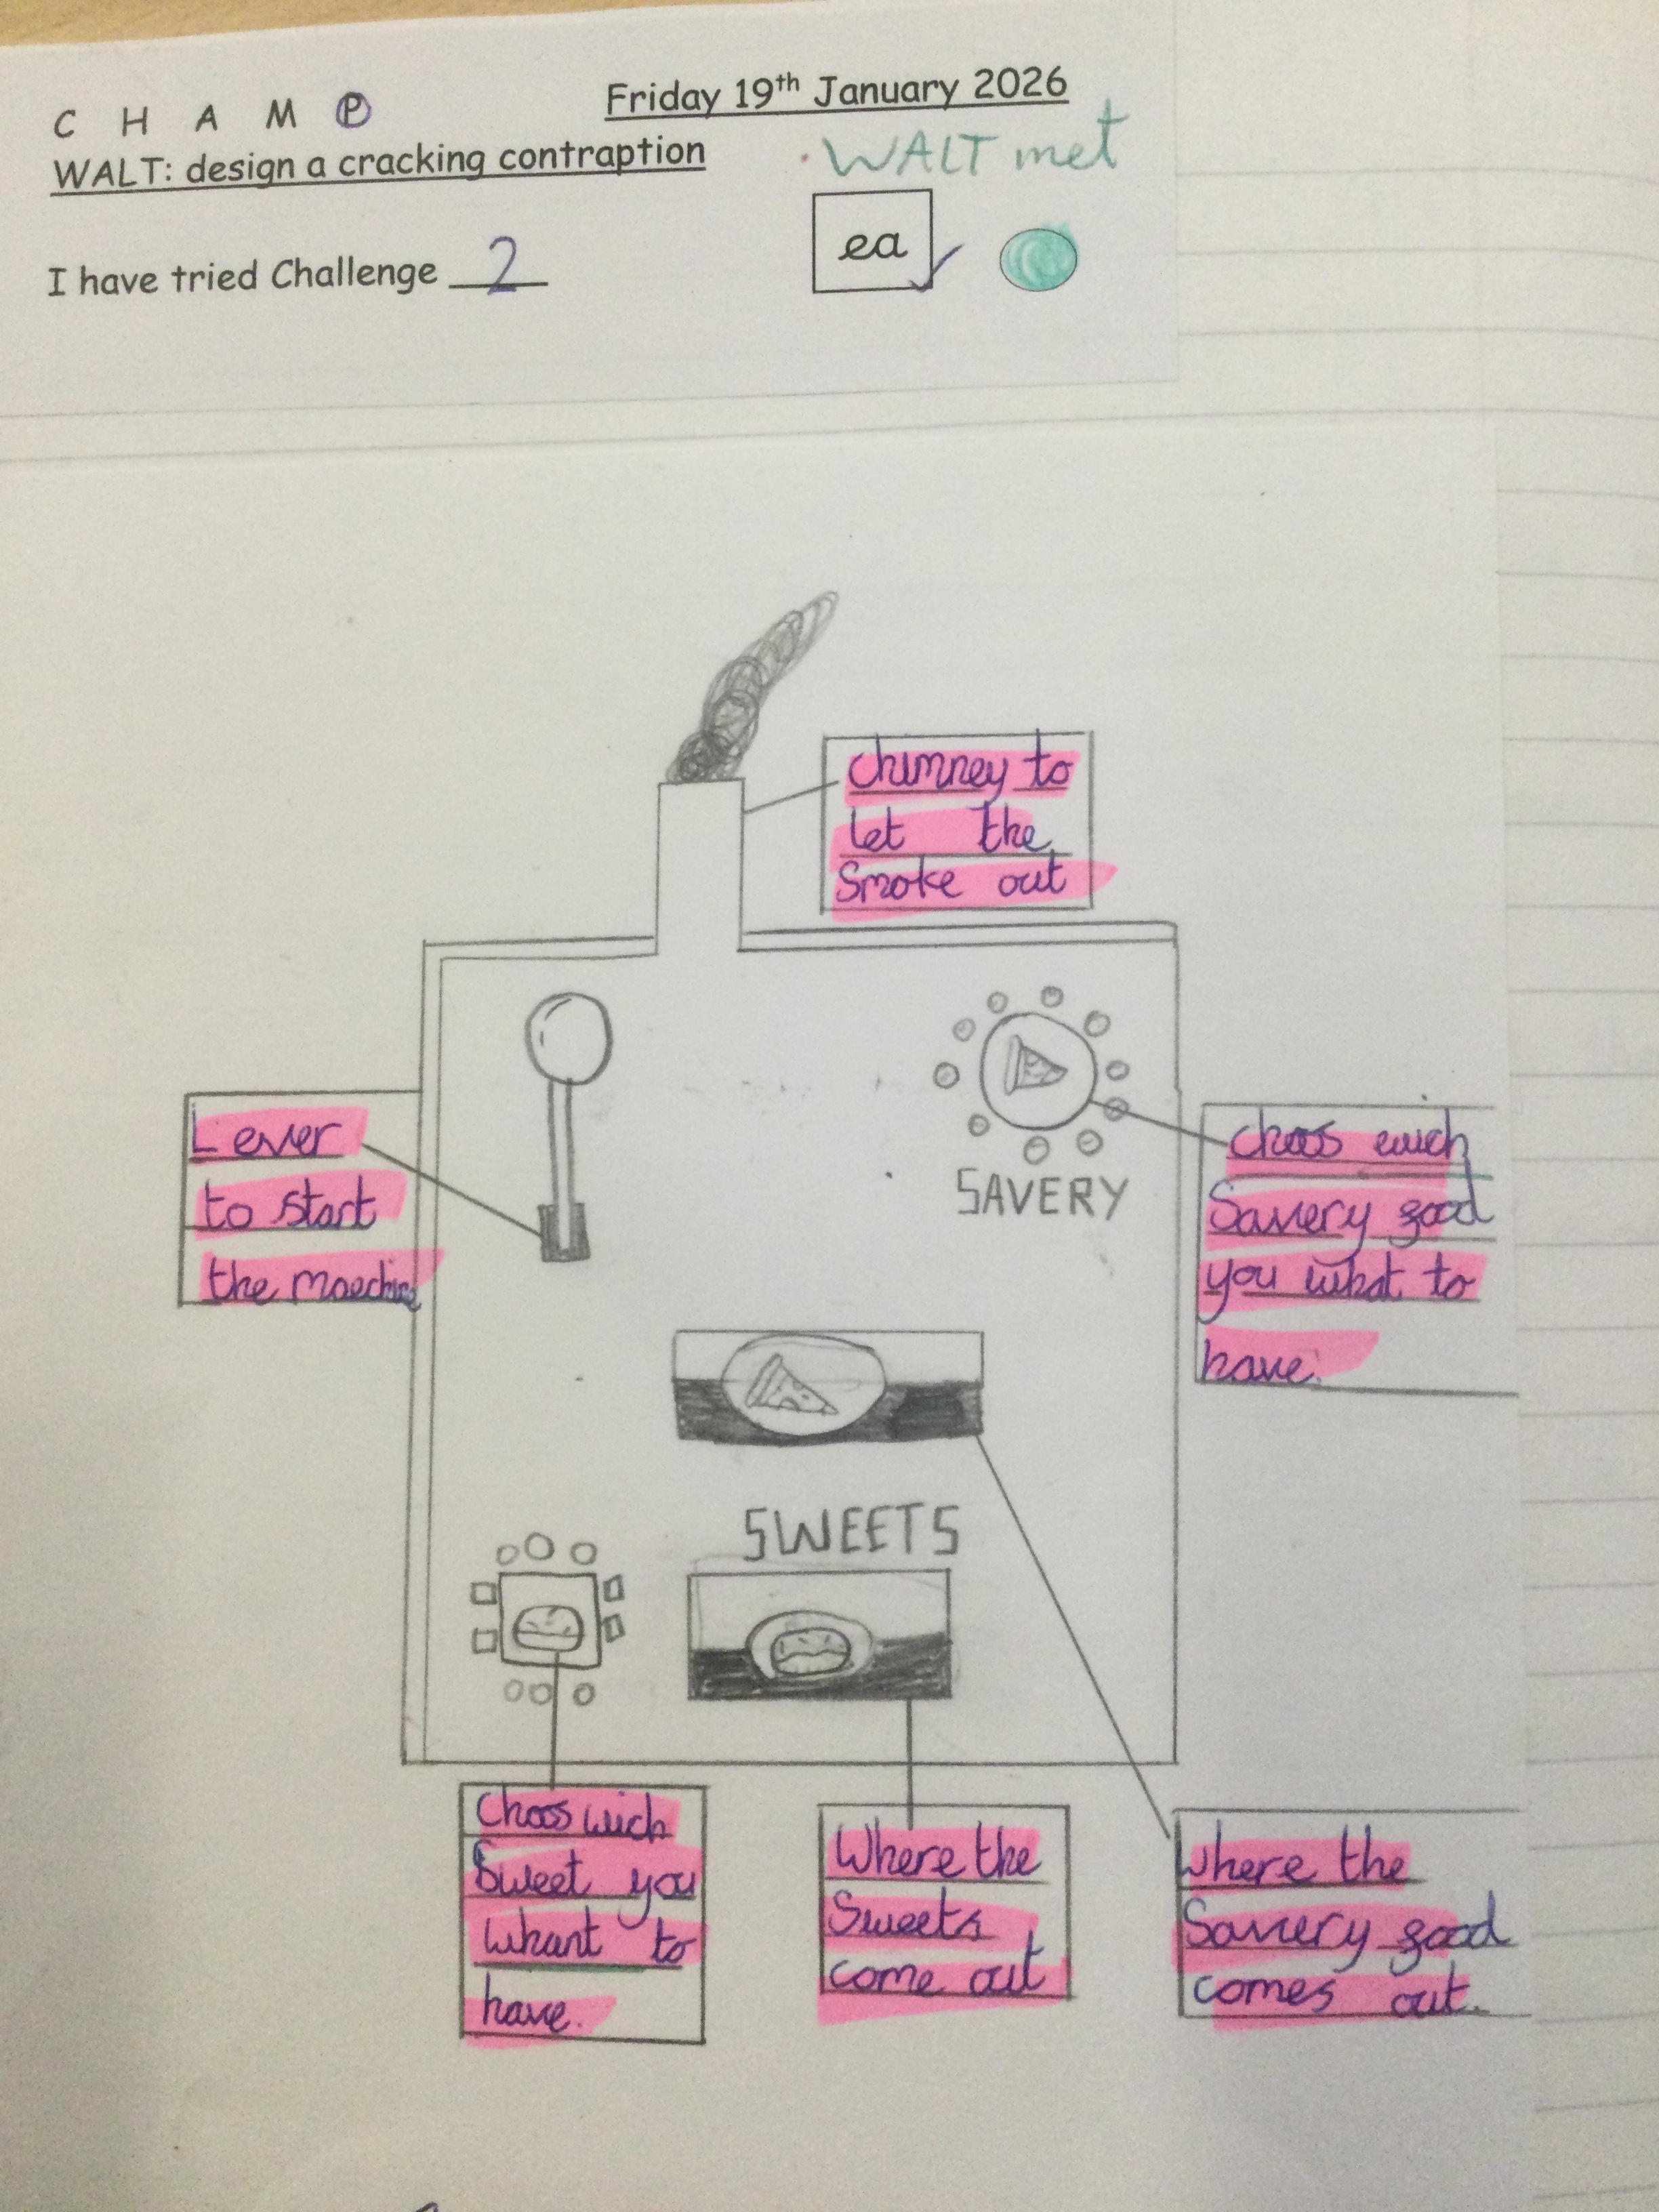 C H A M P
Friday 19th January 2026
WALT: design a cracking contraption
WALT met
I have tried Challenge 2
ea
chimney to
let the
Smoke out
Lever
to start
the
SAVERY
choos wich
Savery good
you what to
have.
SWEETS
Choos wich
Sweet you
whant to
have.
Where the
Sweets
come out
where the
Savery good
comes out.